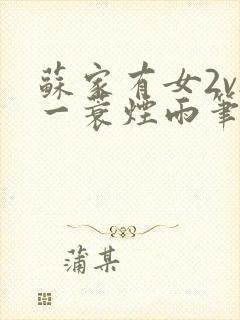 蘇家有女2v
一蓑煙雨筆
蒲某